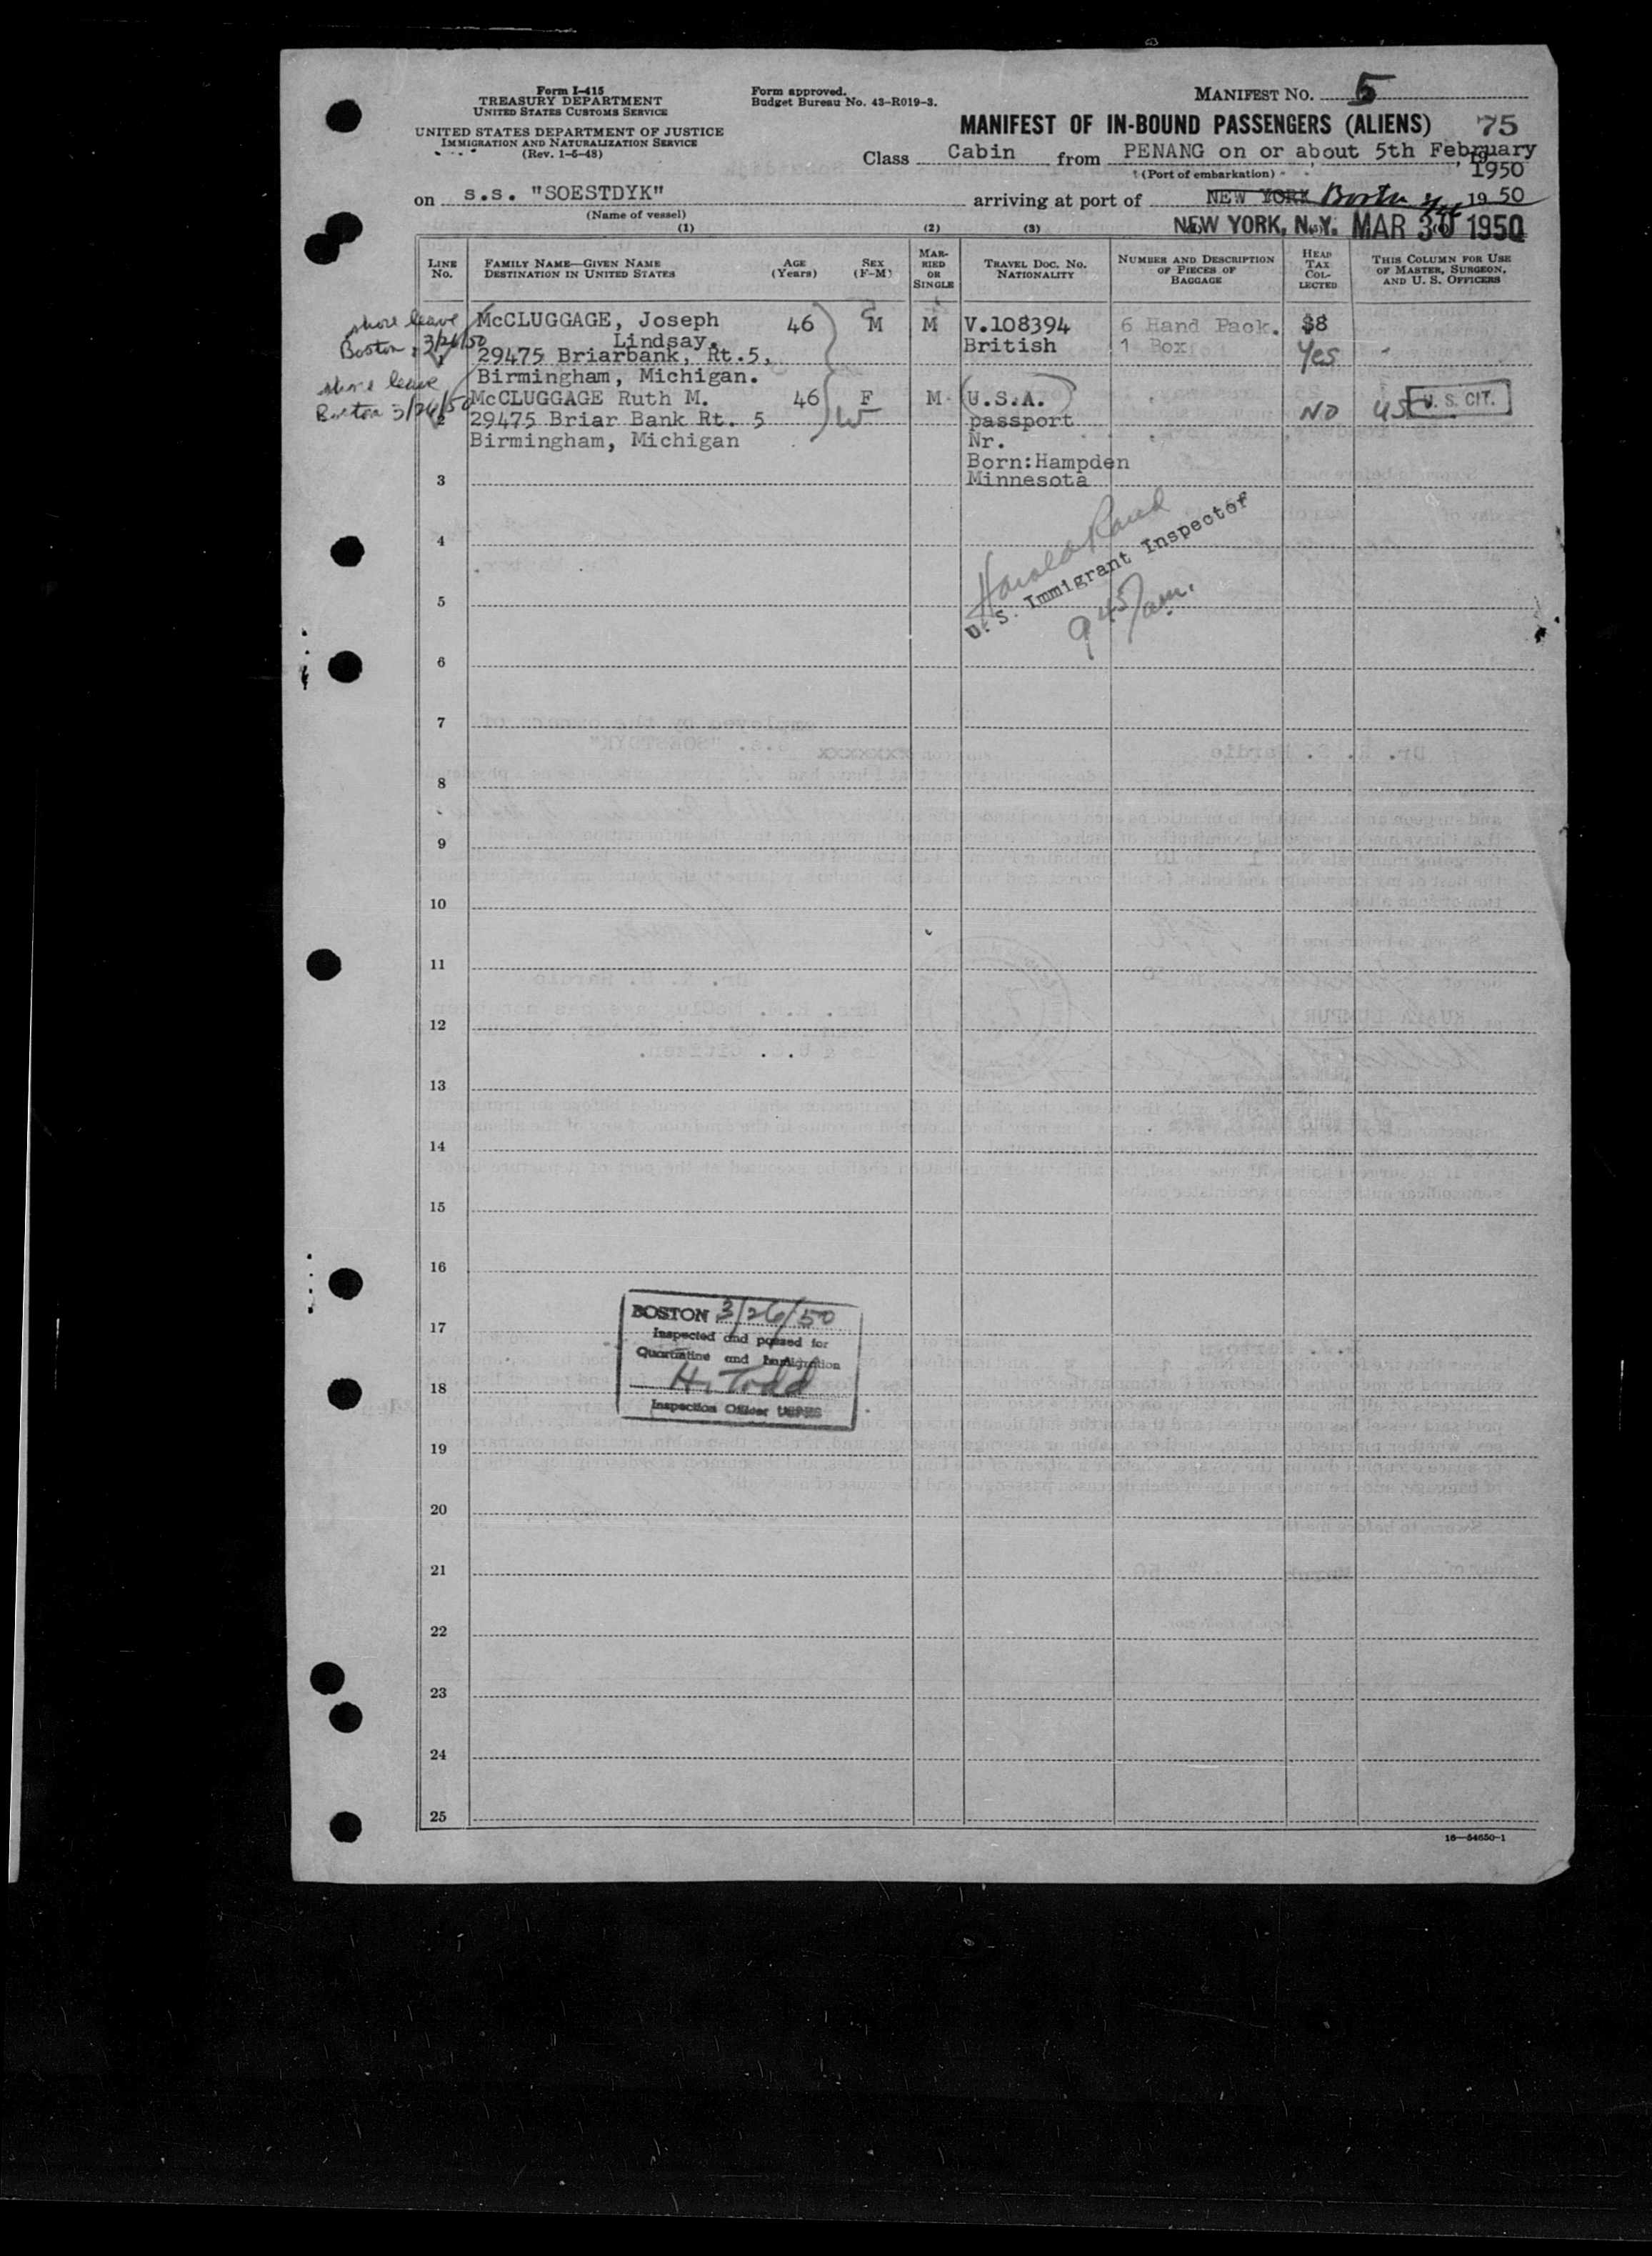 Form I-415
TREASURY DEPARTMENT
UNITED STATES CUSTOMS SERVICE
UNITED STATES DEPARTMENT OF JUSTICE
IMMIGRATION AND NATURALIZATION SERVICE
(Rev. 1-5-48)
Form approved.
Budget Bureau No. 43-R019-3.
MANIFEST NO. 5
MANIFEST OF IN-BOUND PASSENGERS (ALIENS) 75
Class Cabin from PENANG on or about 5th February, 19
(Port of embarkation) 1950
on s.s. "SOESTDYK" arriving at port of NEW YORK Boston 19 50
(Name of vessel)
NEW YORK, N.Y. MAR 30 1950
(1) (2) (3)
LINE No.
FAMILY NAME—GIVEN NAME
DESTINATION IN UNITED STATES
AGE (Years)
SEX (F-M)
MARRIED OR SINGLE
TRAVEL DOC. NO. NATIONALITY
NUMBER AND DESCRIPTION OF PIECES OF BAGGAGE
HEAD TAX COLLECTED
THIS COLUMN FOR USE OF MASTER, SURGEON, AND U. S. OFFICERS
shore leave McCLUGGAGE, Joseph 46 M M V.108394 6 Hand Pack. $8
Boston 3/26/50 Lindsay. British 1 Box Yes
1 29475 Briarbank, Rt.5,
Birmingham, Michigan.
shore leave McCLUGGAGE Ruth M. 46 F M U.S.A. No US U. S. CIT.
Boston 3/26/50
2 29475 Briar Bank Rt. 5 W passport
Birmingham, Michigan Nr.
Born:Hampden
3 Minnesota
4
Harold Rand
U. S. Immigrant Inspector
5
9 45/am.
6
7
8
9
10
11
12
13
14
15
16
BOSTON 3/26/50
17
Inspected and passed for
Quarantine and Immigration
H. Todd
18
Inspection Officer USPHS
19
20
21
22
23
24
25
16—54650-1